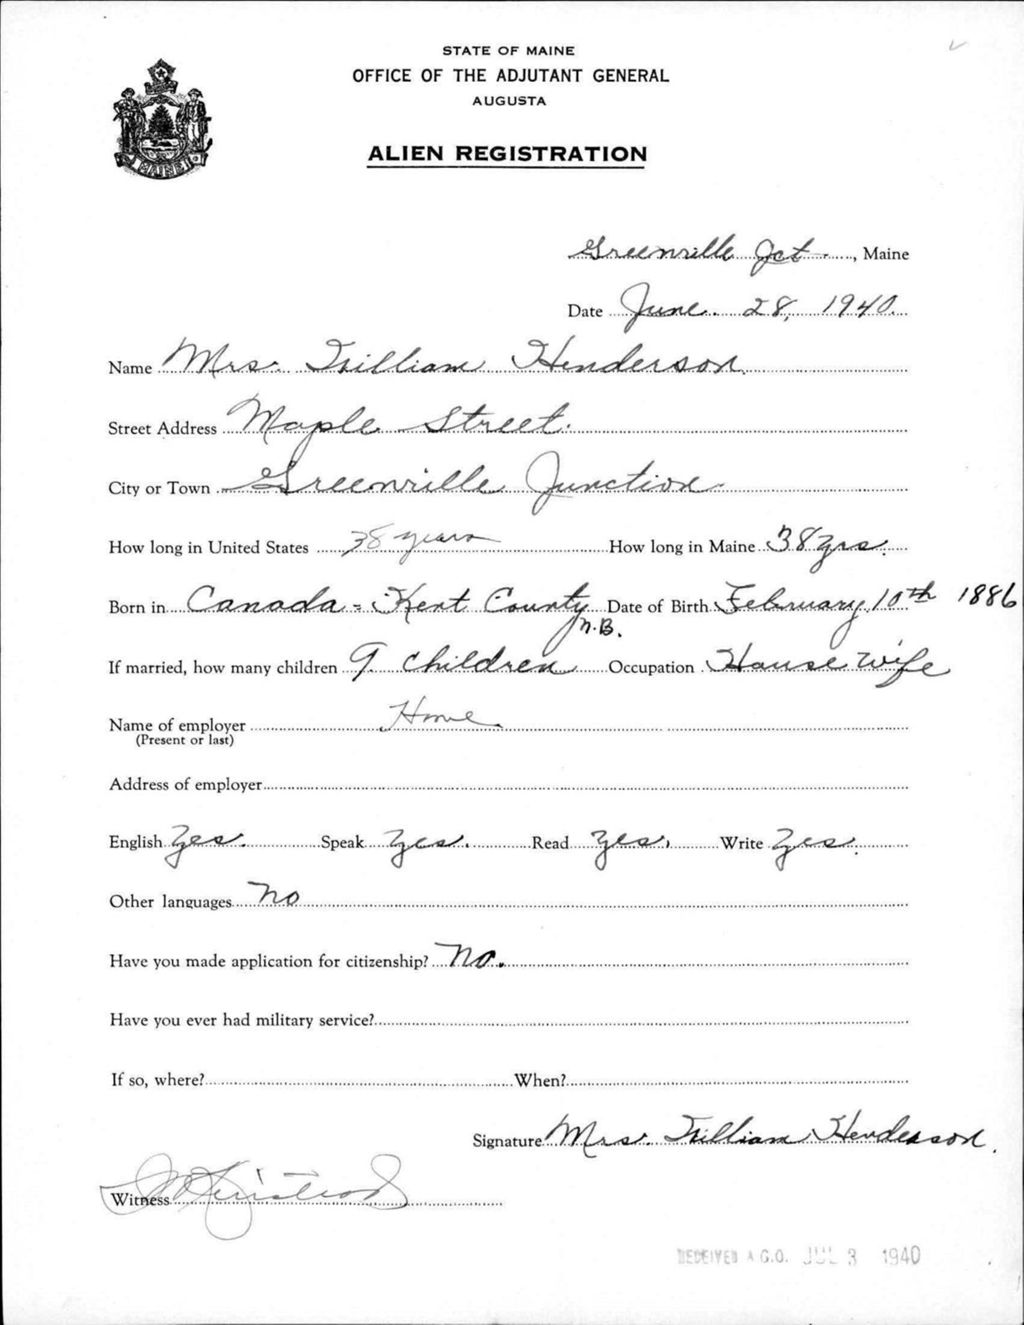 STATE OF MAINE
OFFICE OF THE ADJUTANT GENERAL
AUGUSTA
ALIEN REGISTRATION
MAINE
Greenville Jct., Maine
Date June 28, 1940
Name Mrs. William Henderson
Street Address Maple Street.
City or Town Greenville Junction
How long in United States 38 years How long in Maine 38 yrs.
Born in Canada - Kent County N.B. Date of Birth February 10th 1886
If married, how many children 9 children Occupation House wife
Name of employer Home
(Present or last)
Address of employer
English Yes. Speak Yes. Read Yes. Write Yes.
Other languages No
Have you made application for citizenship? No.
Have you ever had military service?
If so, where? When?
Signature Mrs. William Henderson.
Witness
RECEIVED A.G.O. JUL 3 1940